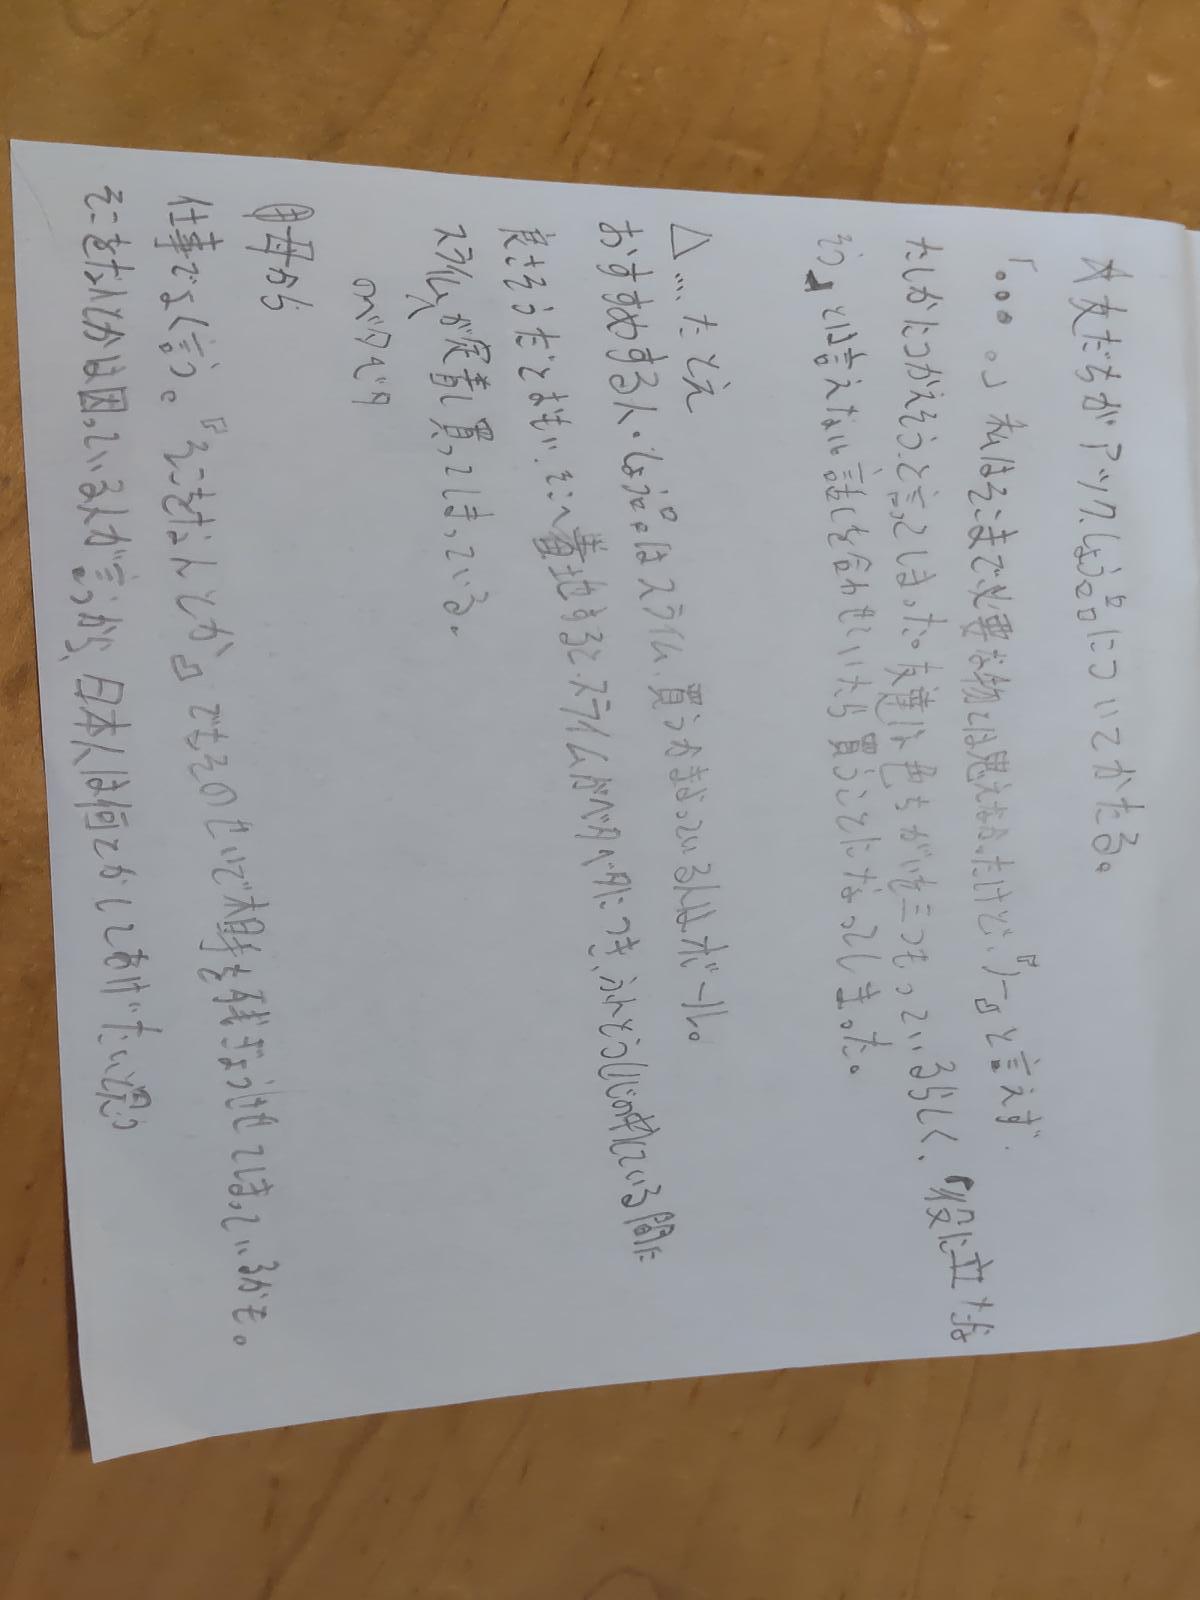 ☆友だちがアツク、しょう品についてかたる。
「•••。」私はそこまで必要な物とは思えなかったけど、『ノー』と言えず
たしかにつかえそうと言ってしまった。友達は色ちがいを三つもっているらしく、『役に立たな
そう』とは言えない話しを合わせていたら買うことになってしまった。
△…たとえ
おすすめする人・しょう品はスライム、買うかまよっている人はボール。
良さそうだとおもい、そこへ着地するとスライムがベタベタにつき、
いる間に
スライムが定着し買ってしまっている。
のベタベタ
母から
仕事でよく言う。『そこをなんとか』でもそのせいで相手を残ぎょうさせてしまっているかも。
そこをなんとかは困っている人が言うから、日本人は何とかしてあげたいと思う